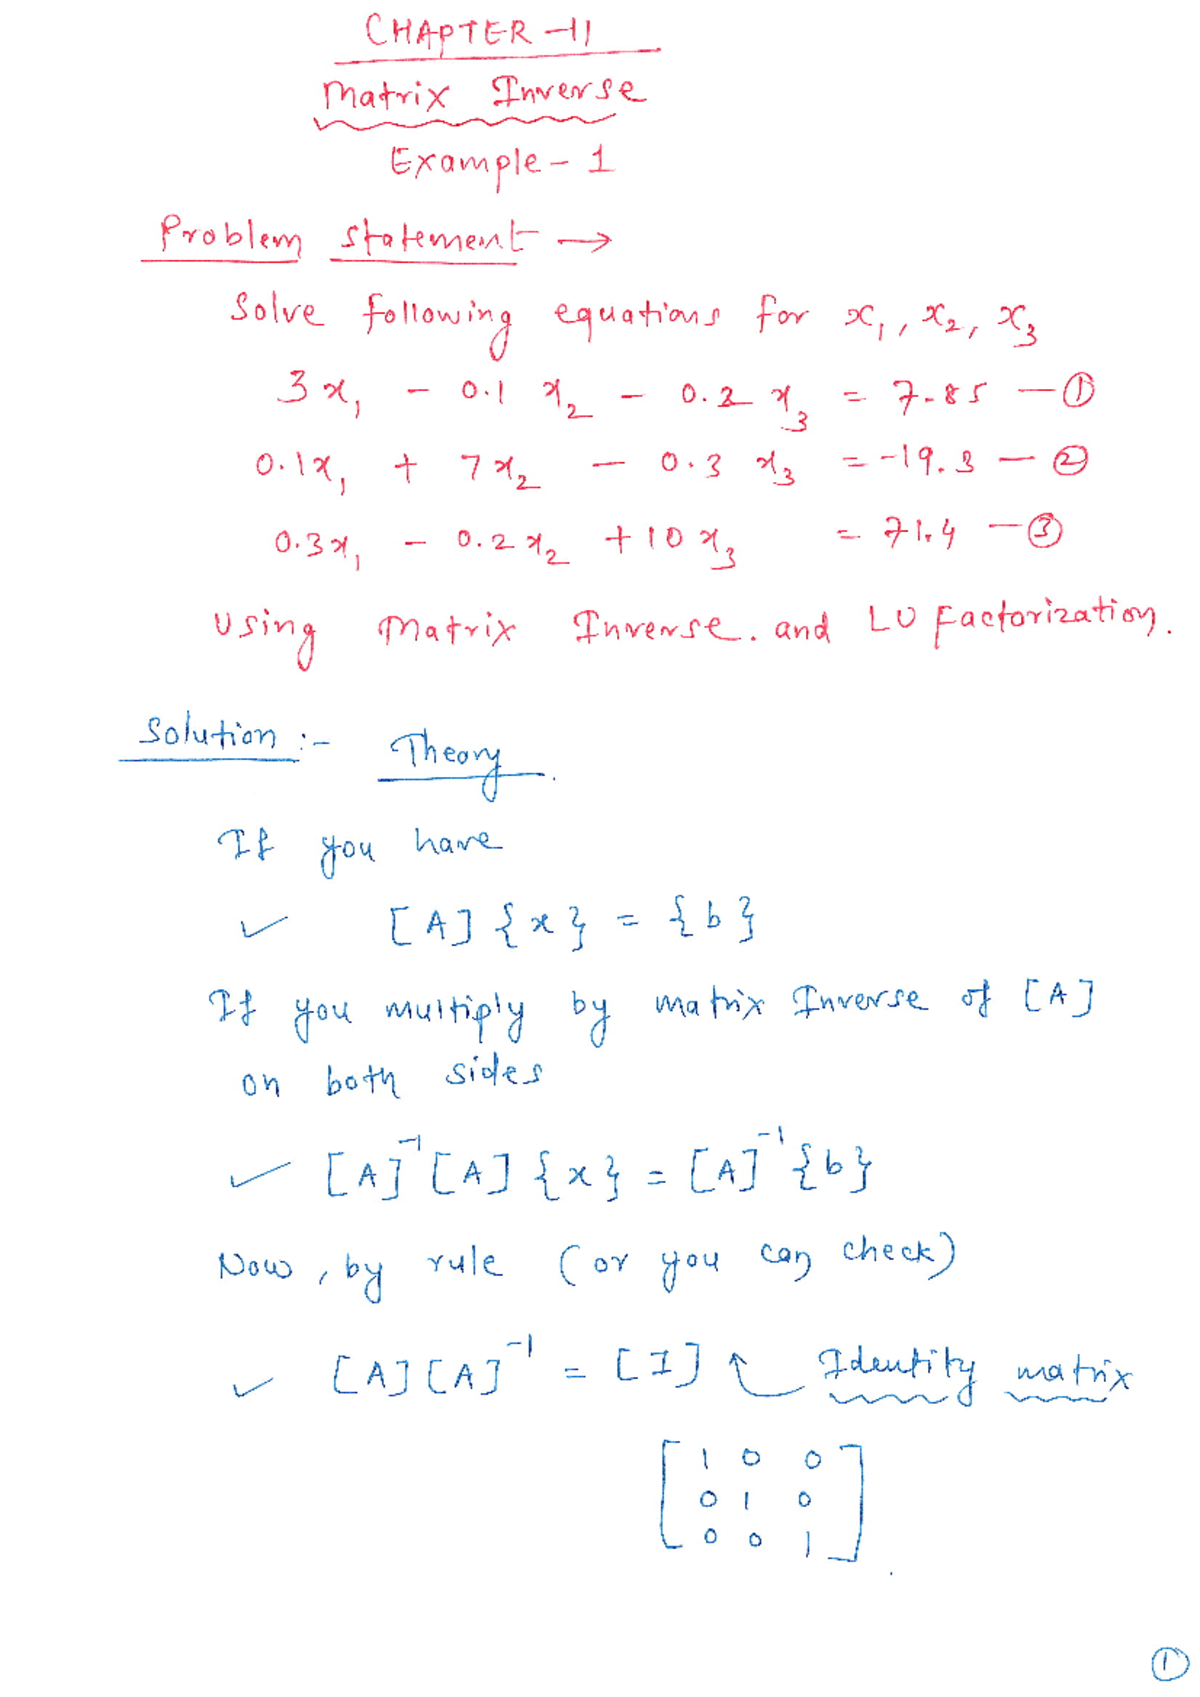 CHAPTER-11
Matrix Inverse
Example-1
Problem statement →
Solve following equations for x₁, x₂, x₃
3x₁ - 0.1 x₂ - 0.2 x₃ = 7.85 — ①
0.1x₁ + 7x₂ - 0.3 x₃ = -19.3 — ②
0.3x₁ - 0.2x₂ + 10x₃ = 71.4 — ③
Using Matrix Inverse. and LU Factorization.
Solution :- Theory.
If you have
✓ [A]{x} = {b}
If you multiply by matrix Inverse of [A]
on both sides
✓ [A]⁻¹[A]{x} = [A]⁻¹{b}
Now, by rule (or you can check)
✓ [A][A]⁻¹ = [I] Identity matrix
1 0 0
0 1 0
0 0 1
①